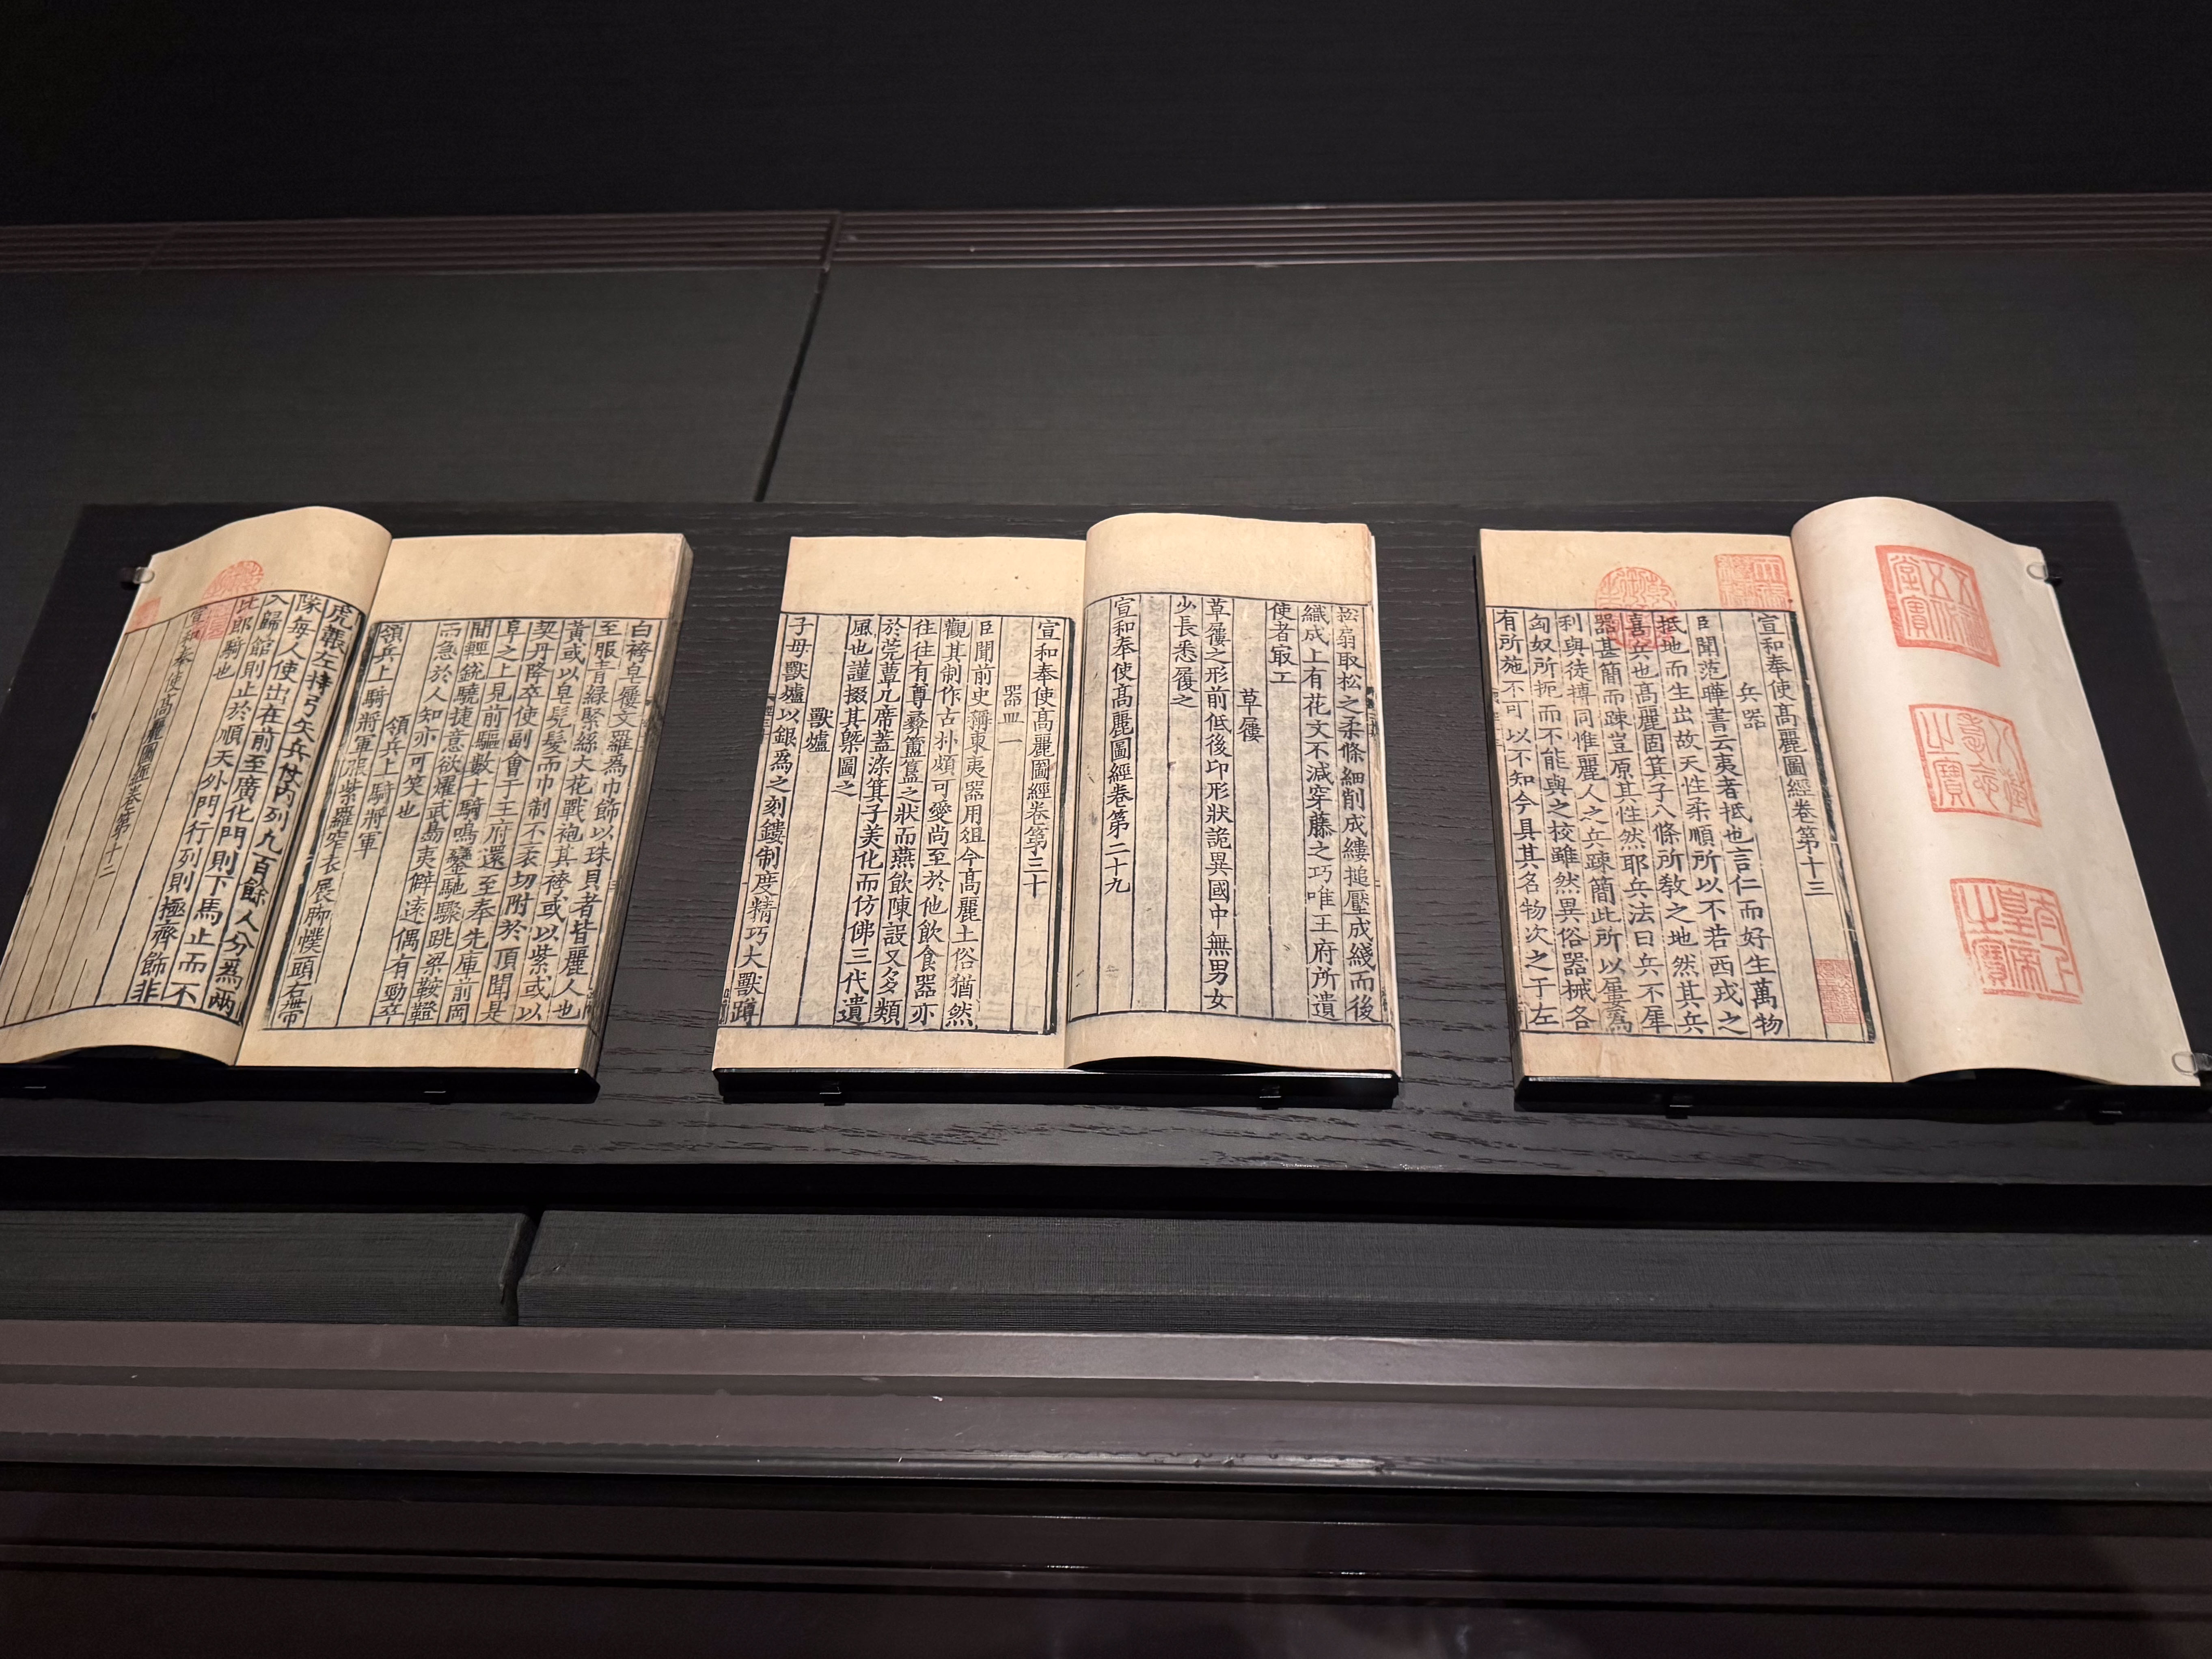 五福五代堂寶
八徵耄念之寶
太上皇帝之寶
宣和奉使髙麗圖經卷第十三
兵器
臣聞范曄書云夷者抵也言仁而好生萬物
抵地而生出故天性柔順所以不若西戎之
喜兵也髙麗固箕子八條所敎之地然其兵
器甚簡而踈豈原其性然耶兵法曰兵不犀
利與徒搏同惟麗人之兵踈簡此所以屢爲
匈奴所扼而不能與之校雖然異俗器械各
有所施不可以不知今具其名物次之于左
松扇取松之柔條細削成縷搥壓成綫而後
織成上有花文不減穿藤之巧唯王府所遺
使者冣工
草屨
草屨之形前低後卬形狀詭異國中無男女
少長悉履之
宣和奉使髙麗圖經卷第二十九
宣和奉使髙麗圖經卷第三十
器皿一
臣聞前史稱東夷器用俎今髙麗土俗猶然
觀其制作古朴頗可愛尚至於他飮食器亦
往往有尊彝簠簋之狀而燕飮陳設又多類
於莞蕈几席蓋染箕子美化而仿佛三代遺
風也謹掇其槩圖之
獸爐
子母獸爐以銀爲之刻鏤制度精巧大獸蹲
白袴皁屨文羅爲巾飾以珠貝者皆麗人也
至服青緑緊絲大花戰袍其袴或以紫或以
黃或以皂髠髮而巾制不袤切附於頂聞是
契丹降卒使副會于王府還至奉先庫前岡
阜之上見前驅數十騎鳴鑾馳驟跳梁鞍韂
閒輕銳驍捷意欲燿武曷夷僻逺偶有勁卒
而急於人知亦可笑也
領兵上騎將軍
領兵上騎將軍服紫羅窄衣展脚幞頭右帶
虎韔左持弓矢兵仗內列九百餘人分爲兩
隊每人使出在前至廣化門則下馬止而不
入歸館則止於順天外門行列則極齊飾非
比郎騎也
宣和奉使髙麗圖經卷第十二